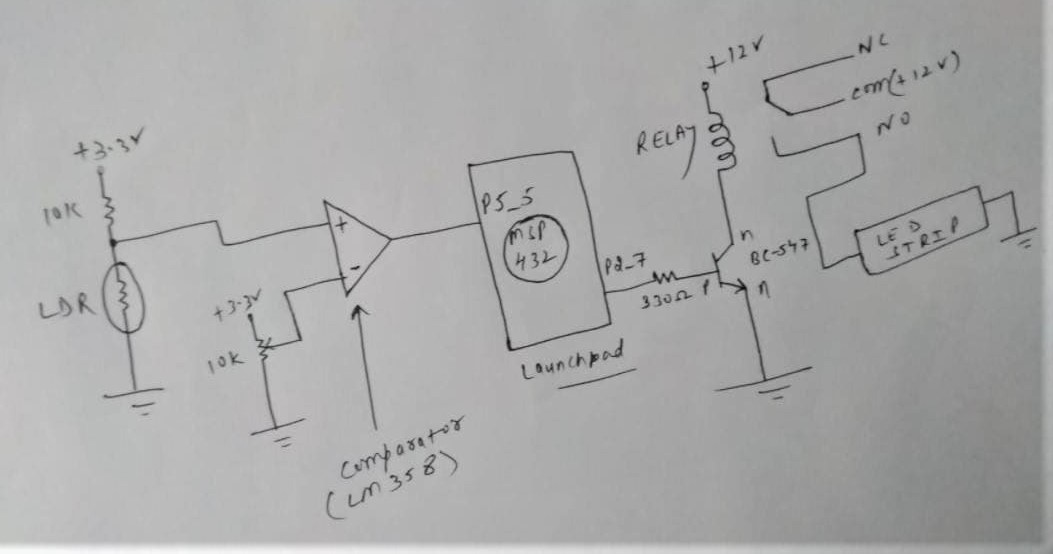 +3.3V
10K
LDR
+3.3V
10K
+
-
Comparator
(LM358)
P5_5
MSP
432
P2_7
Launchpad
330Ω
P
n
n
BC-547
RELAY
+12V
NC
com(+12V)
NO
LED
STRIP